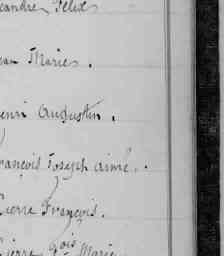 eandre, Felix
ean Maries.
enri Augustin.
rançois Joseph aimé.
Pierre François.
Pierre Gois Marie